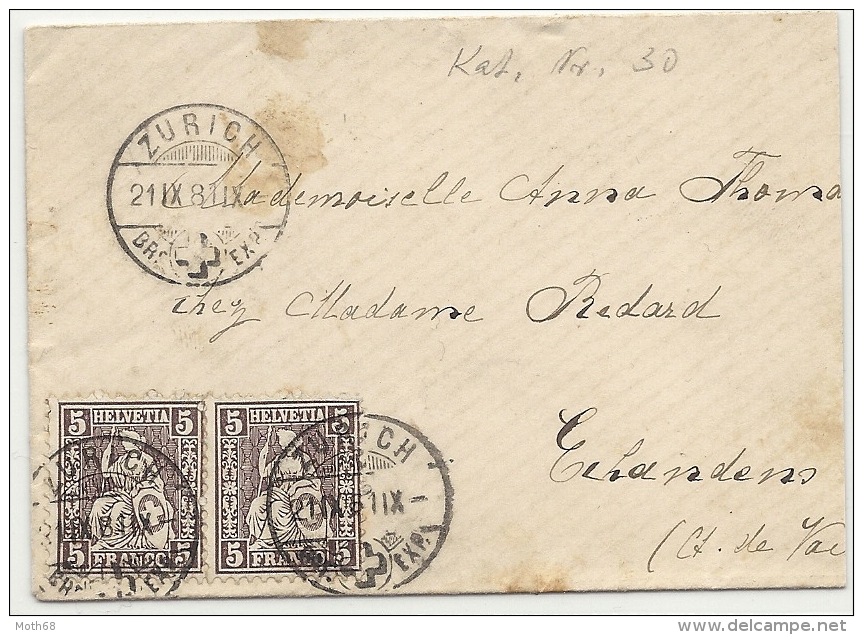 Kat. Nr. 30
ZURICH
21 IX 81 IX
BR. EXP.
Mademoiselle Anna Thoma
chez Madame Redard
Echandens
(Ct. de Vau
5 HELVETIA 5
5 FRANCO 5
5 HELVETIA 5
5 FRANCO 5
ZURICH
IX 81 IX
EXP.
ZURICH
21 IX 81 IX
EXP.
Moth68
www.delcampe.net